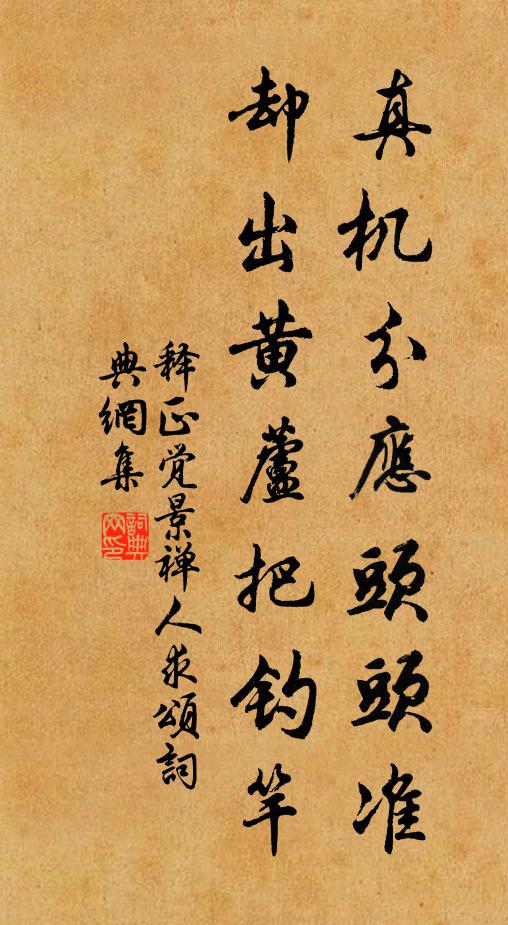 真机分應頭頭准
却出黄蘆把钓竿
释正觉景禅人求頌詞
典網集
詞典网印